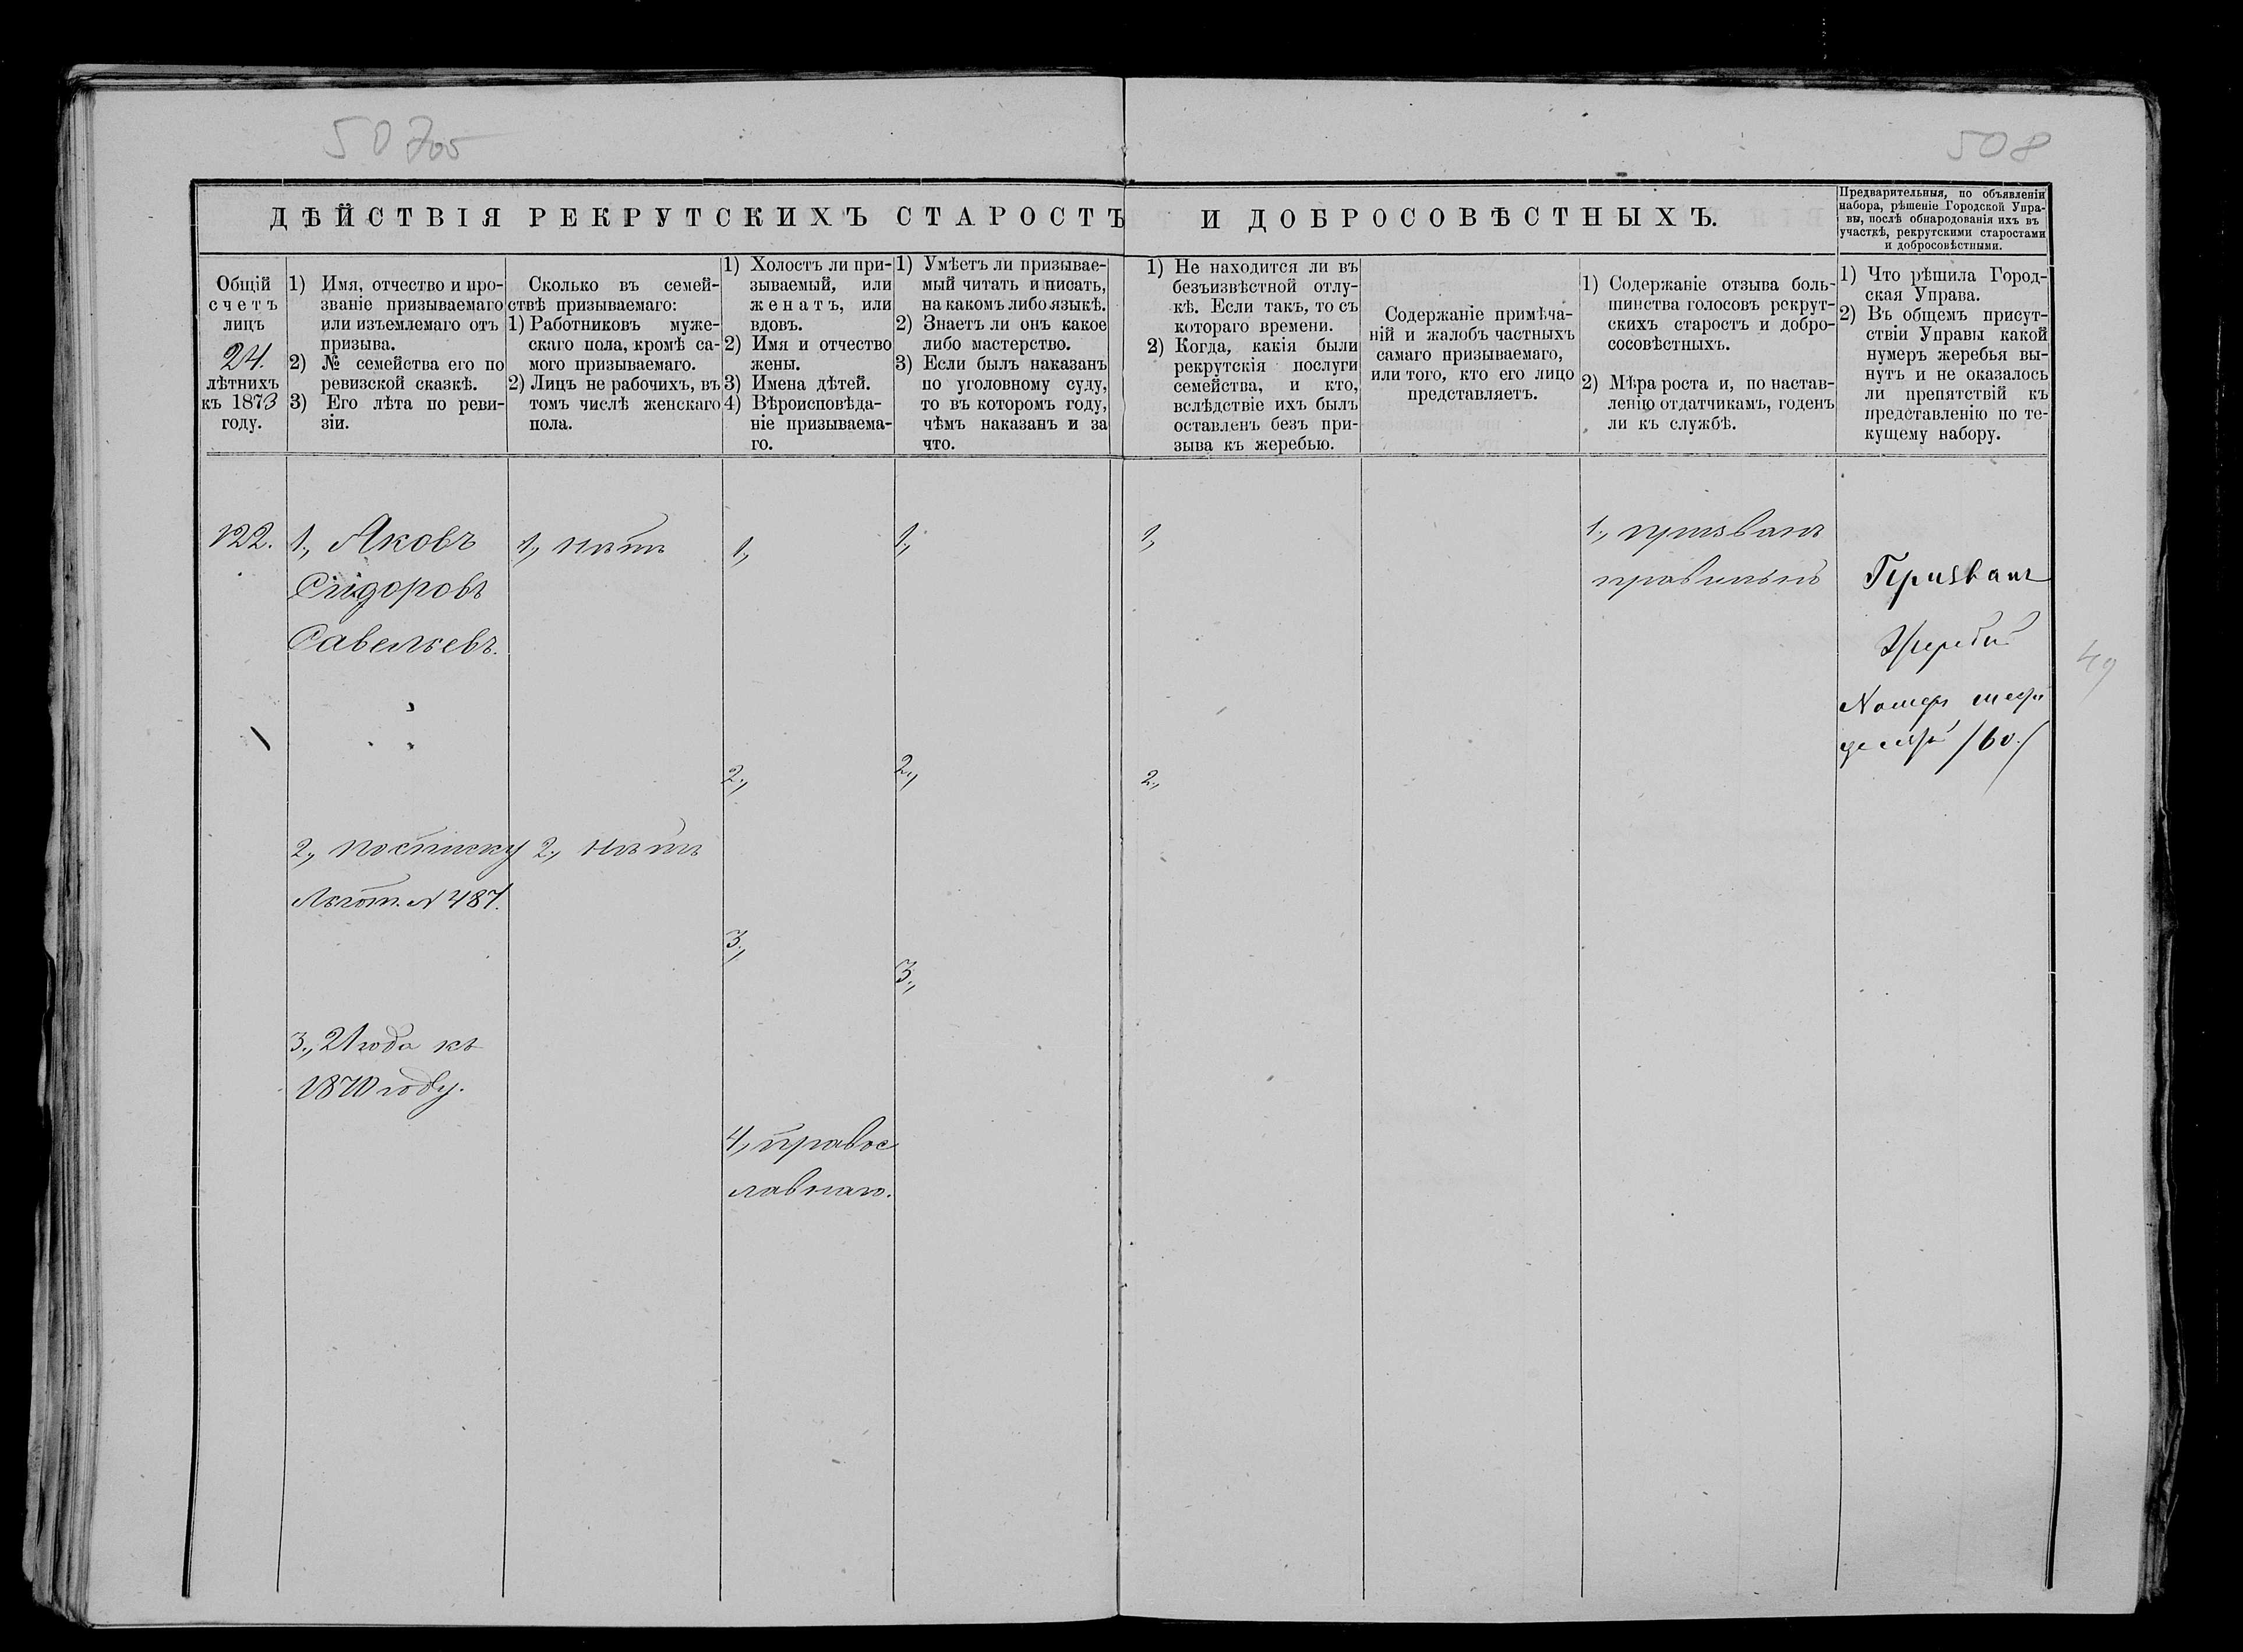 507об
508
ДѢЙСТВІЯ РЕКРУТСКИХЪ СТАРОСТЪ И ДОБРОСОВѢСТНЫХЪ.
Предварительныя, по объявленіи
набора, рѣшеніе Городской Упра-
вы, послѣ обнародованія ихъ въ
участкѣ, рекрутскими старостами
и добросовѣстными.
Общій
счетъ
лицъ
24.
лѣтнихъ
къ 1873
году.
1) Имя, отчество и про-
званіе призываемаго
или изъемлемаго отъ
призыва.
2) № семейства его по
ревизской сказкѣ.
3) Его лѣта по реви-
зіи.
Сколько въ семей-
ствѣ призываемаго:
1) Работниковъ муже-
скаго пола, кромѣ са-
мого призываемаго.
2) Лицъ не рабочихъ, въ
томъ числѣ женскаго
пола.
1) Холостъ ли при-
зываемый, или
женатъ, или
вдовъ.
2) Имя и отчество
жены.
3) Имена дѣтей.
4) Вѣроисповѣда-
ніе призываема-
го.
1) Умѣетъ ли призывае-
мый читать и писать,
на какомъ либо языкѣ.
2) Знаетъ ли онъ какое
либо мастерство.
3) Если былъ наказанъ
по уголовному суду,
то въ которомъ году,
чѣмъ наказанъ и за
что.
1) Не находится ли въ
безъизвѣстной отлу-
кѣ. Если такъ, то съ
котораго времени.
2) Когда, какія были
рекрутскія послуги
семейства, и кто,
вслѣдствіе ихъ былъ
оставленъ безъ при-
зыва къ жеребью.
Содержаніе примѣча-
ній и жалобъ частныхъ
самаго призываемаго,
или того, кто его лицо
представляетъ.
1) Содержаніе отзыва боль-
шинства голосовъ рекрут-
скихъ старостъ и добро-
сосовѣстныхъ.
2) Мѣра роста и, по настав-
ленію отдатчикамъ, годенъ
ли къ службѣ.
1) Что рѣшила Город-
ская Управа.
2) Въ общемъ присут-
ствіи Управы какой
нумеръ жеребья вы-
нутъ и не оказалось
ли препятствій къ
представленію по те-
кущему набору.
122.
1., Яковъ
Сидоровъ
Савельевъ.
2., по списку
Льгот. N 487.
3., 21 года къ
1870 году.
1., нѣтъ
2., нѣтъ
1.,
2.,
3.,
4., правос
лавнаго.
1.,
2.,
3.,
1.,
2.,
1., призванъ
правильно
Призванъ
Жребій
Номеръ шесть
десятъ /60./
49